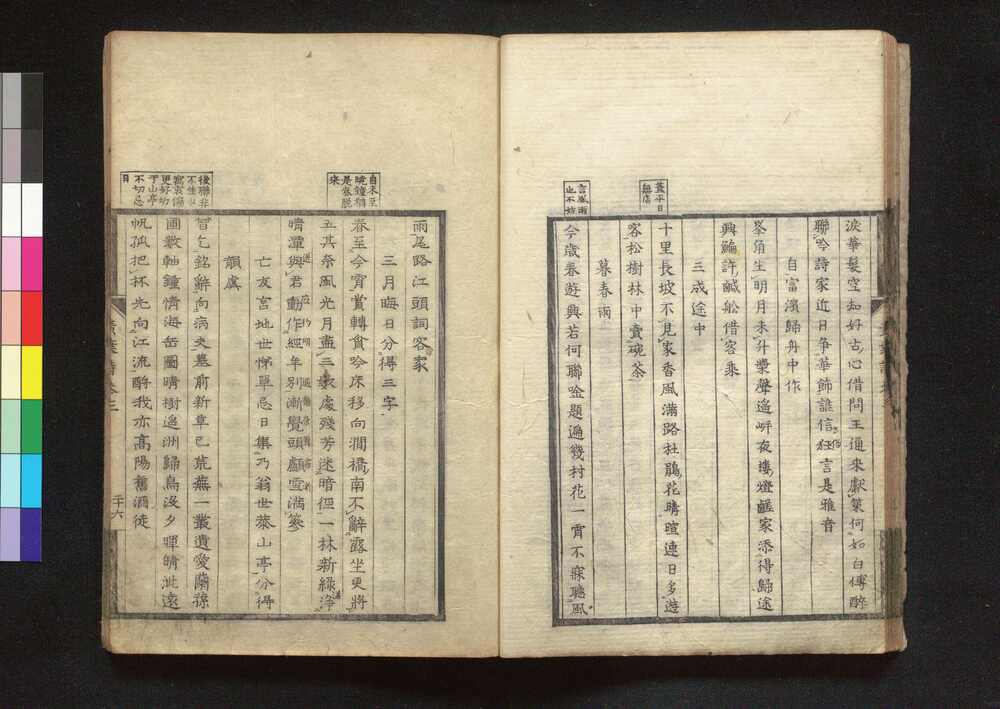 淚華髮空知好古心借問王通來獻策何如白傅醉
聯吟詩家近日爭華飾誰信狂言是雅音
自富濱歸舟中作
峯角生明月未升槳聲遙呼夜樓燈鹺家添得歸途
興鯿許鹹船借客乘
三戒途中
蓋平日
十里長坡不見家香風滿路杜鵑花晴暄連日多遊
客松樹林中賣碗茶
暮春雨
言風雨
亦不妨
今歲春遊興若何聯唫題遍幾村花一宵不寐聽風
雨尾路江頭詞客家
三月晦日分得三字
自未至
晚鐘猶
是春脫
來
春至今宵賞轉貪吟床移向澗橘南不辭露坐更將
五其奈風光月盡三處殘芳迷暗徑一林新綠淨
晴潭與君動作經年別漸覺頭顱雪滿簪
亡友宮地世悌單忌日集乃翁世萊山亭分得
韻虞
後聯非
不佳
寫哀傷
更好切
于山亭
不切忌
日
曾乞銘辭向病夫墓前新草已荒蕪一叢遺愛蘭猶
圃數軸鍾情海岳圖晴樹遙洲歸鳥沒夕暉晴遠
帆孤把杯先向江流酹我亦高陽舊酒徒
二十六